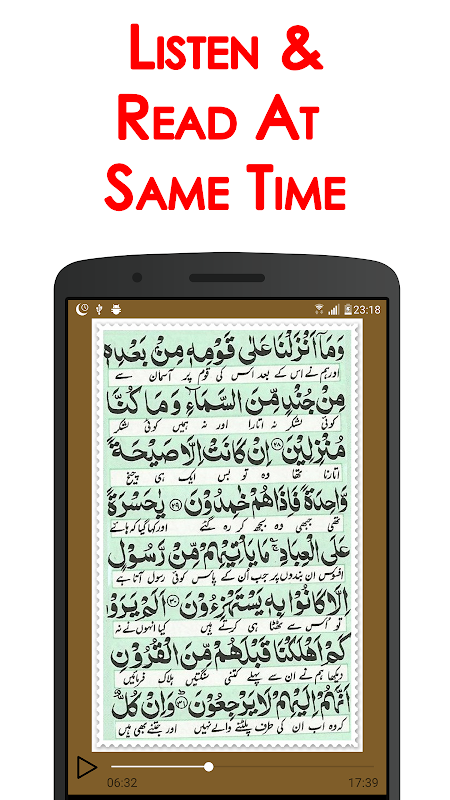 LISTEN &
READ AT
SAME TIME
23:18
وَمَآ اَنْزَلْنَا عَلٰى قَوْمِهٖ مِنْ بَعْدِهٖ
اور ہم نے اس کے بعد اس کی قوم پر آسمان سے
مِنْ جُنْدٍ مِّنَ السَّمَآءِ وَمَا كُنَّا
کوئی لشکر نہ اتارا اور نہ ہمیں کوئی لشکر
مُنْزِلِيْنَ ﴿۲۸﴾ اِنْ كَانَتْ اِلَّا صَيْحَةً
اتارنا تھا وہ تو بس ایک ہی چیخ
وَّاحِدَةً فَاِذَا هُمْ خٰمِدُوْنَ ﴿۲۹﴾ يٰحَسْرَةً
تھی جبھی وہ بجھ کر رہ گئے اور کہا گیا کہ ہائے
عَلَى الْعِبَادِ ۚ مَا يَاْتِيْهِمْ مِّنْ رَّسُوْلٍ
افسوس ان بندوں پر جب ان کے پاس کوئی رسول آتا ہے
اِلَّا كَانُوْا بِهٖ يَسْتَهْزِءُوْنَ ﴿۳۰﴾ اَلَمْ يَرَوْا
تو اس سے ٹھٹھا ہی کرتے ہیں کیا انہوں نے نہ
كَمْ اَهْلَكْنَا قَبْلَهُمْ مِّنَ الْقُرُوْنِ
دیکھا ہم نے ان سے پہلے کتنی سنگتیں ہلاک فرمائیں
اَنَّهُمْ اِلَيْهِمْ لَا يَرْجِعُوْنَ ﴿۳۱﴾ وَاِنْ كُلٌّ
کہ وہ اب ان کی طرف پلٹنے والے نہیں اور جتنے بھی ہیں
06:32 17:39